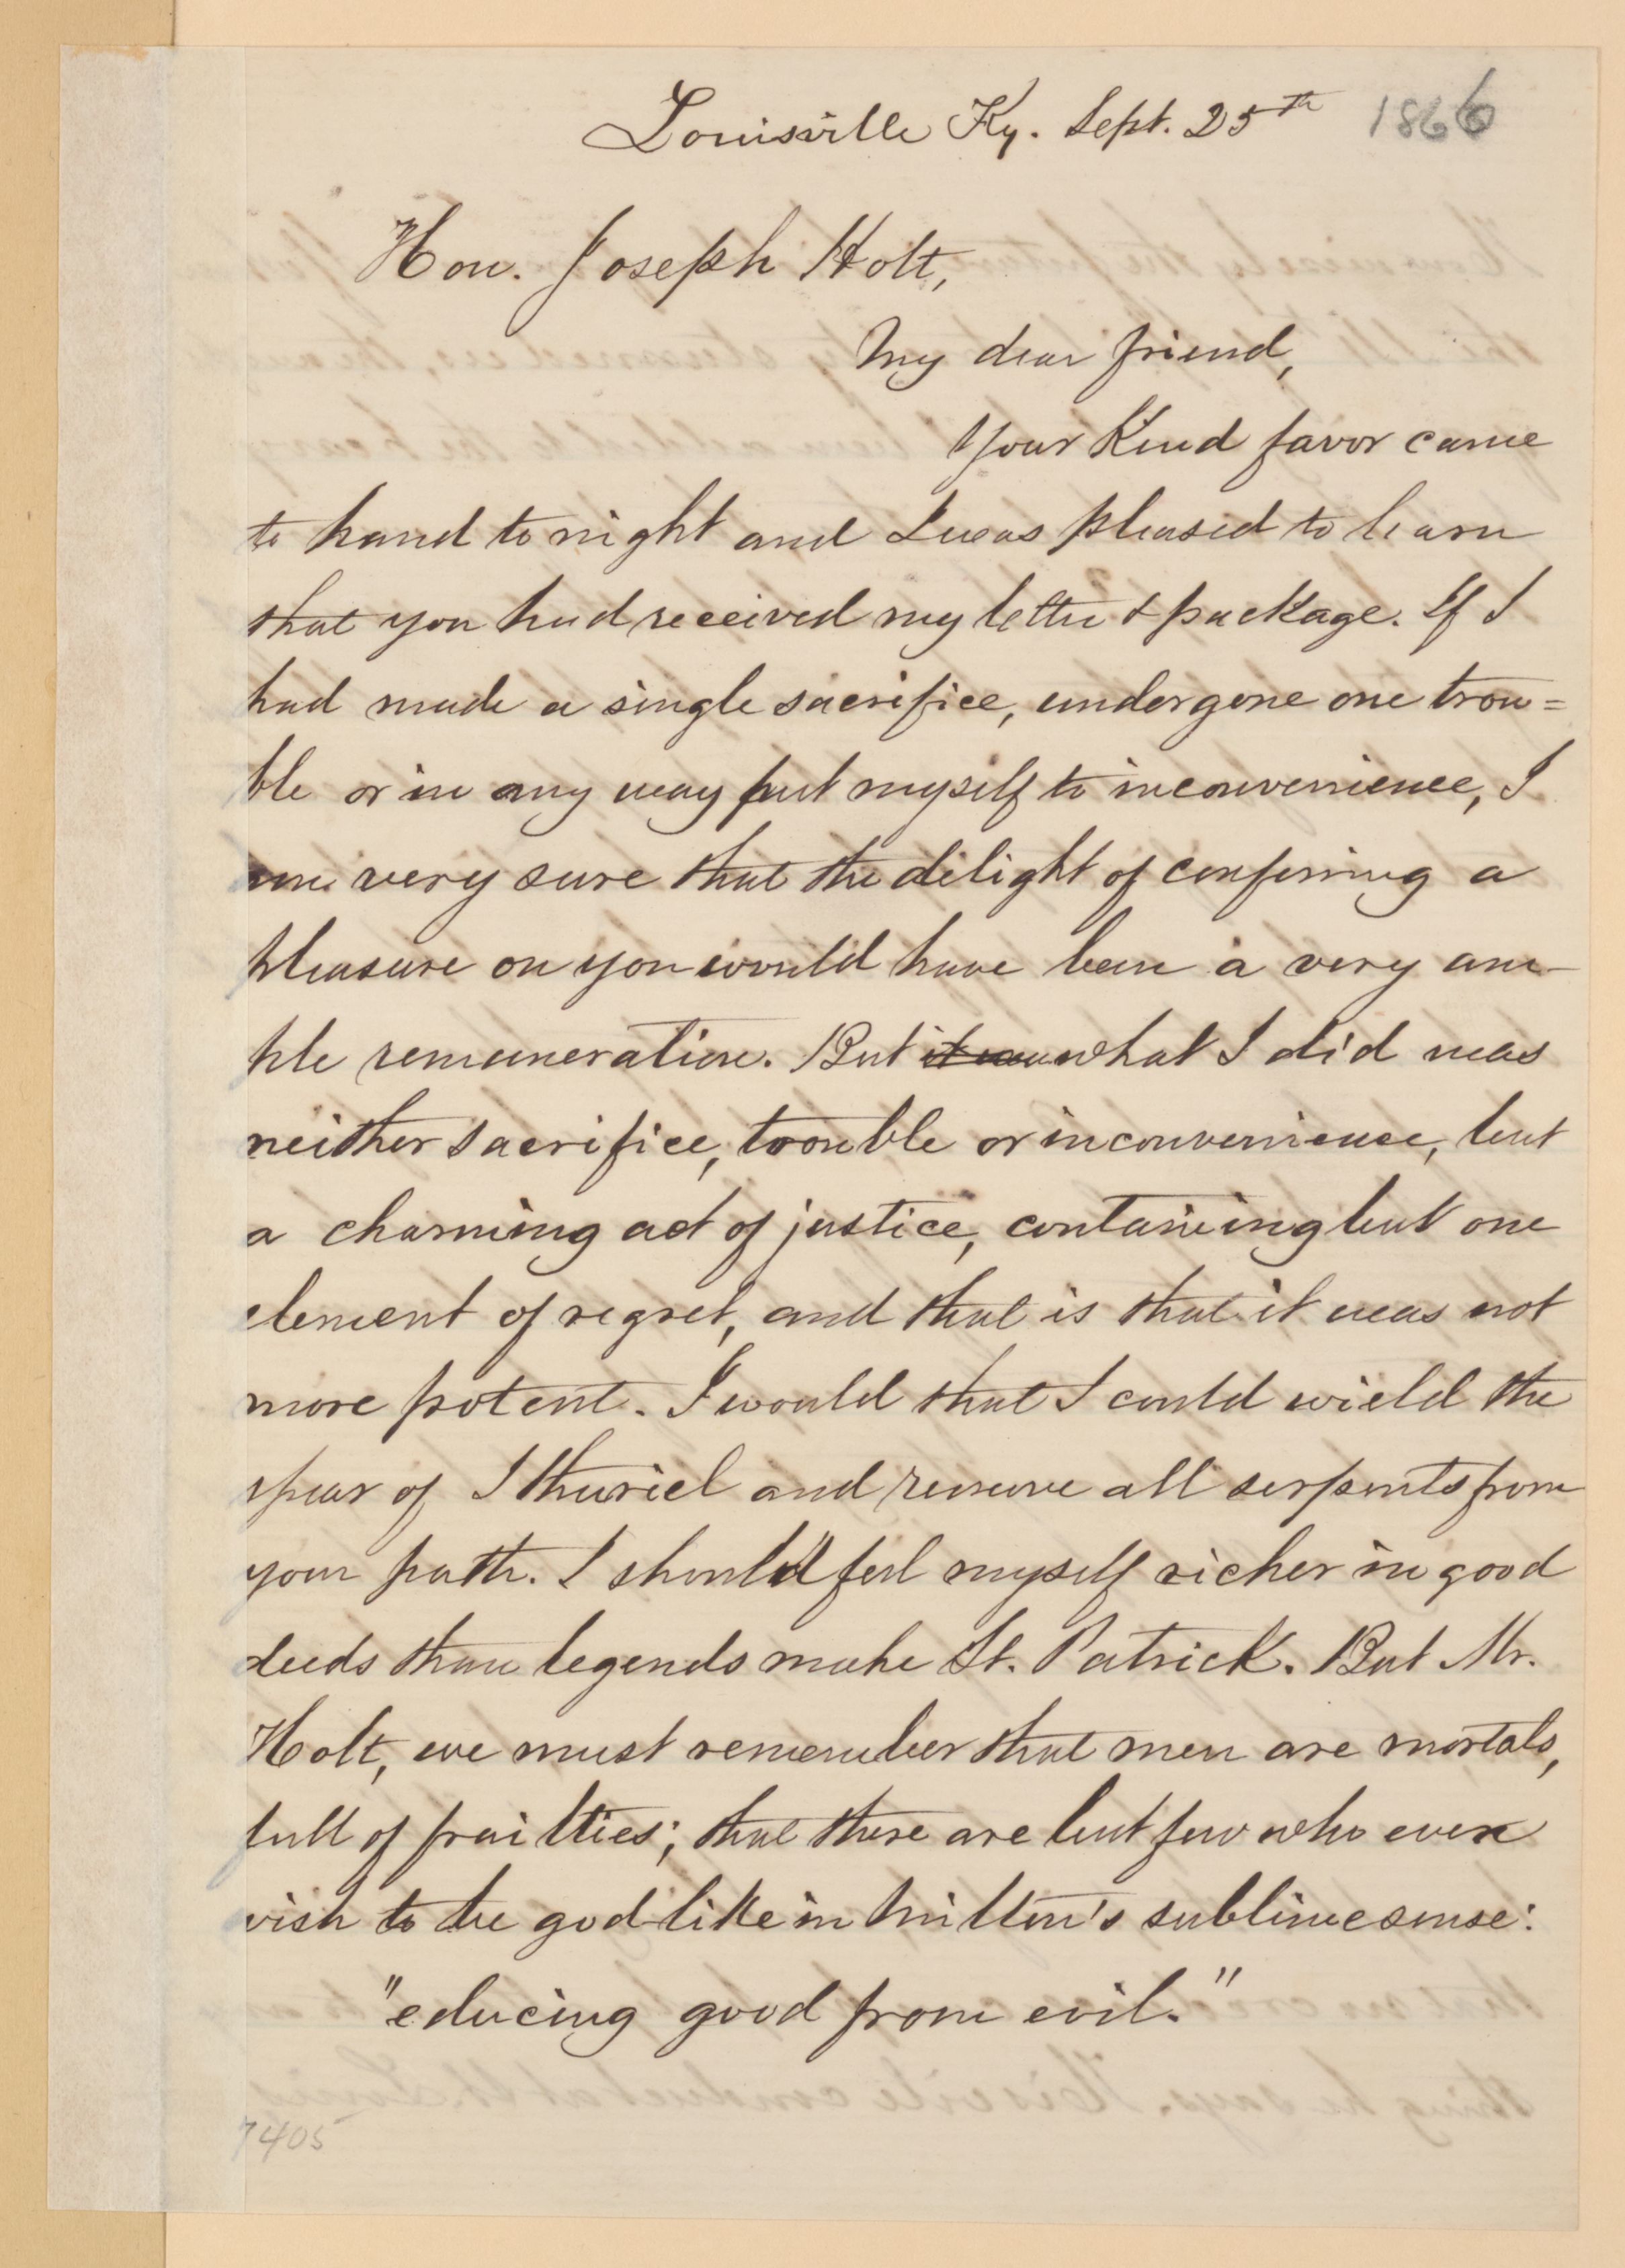 Louisville Ky. Sept. 25th 1866
Hon. Joseph Holt,
My dear friend,
Your kind favor came
to hand to night and I was pleased to learn
that you had received my letter & package. If I
had made a single sacrifice, undergone one trou=
ble or in any way put myself to inconvenience, I
am very sure that the delight of conferring a
pleasure on you would have been a very am-
ple remuneration. But it was what I did was
neither sacrifice, trouble or inconvenience, but
a charming act of justice, containing but one
element of regret, and that is that it was not
more potent. I would that I could wield the
spear of Ithuriel and remove all serpents from
your path. I should feel myself richer in good
deeds than legends make St. Patrick. But Mr.
Holt, we must remember that men are mortals,
full of frailties; that there are but few who even
wish to be godlike in Milton's sublime sense:
"educing good from evil."
7405